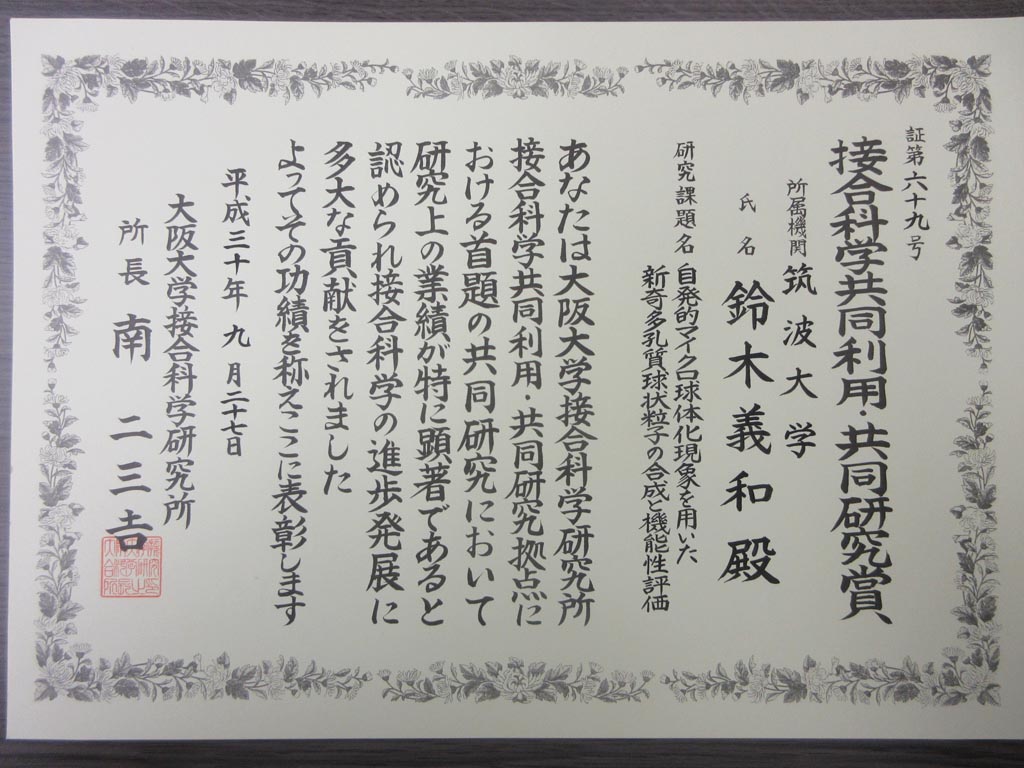 証第六十九号
接合科学共同利用・共同研究賞
所属機関 筑波大学
氏名 鈴木義和殿
研究課題名 自発的マイクロ球体化現象を用いた
新奇多孔質球状粒子の合成と機能性評価
あなたは大阪大学接合科学研究所
接合科学共同利用・共同研究拠点に
おける首題の共同研究において
研究上の業績が特に顕著であると
認められ接合科学の進歩発展に
多大な貢献をされました
よってその功績を称えここに表彰します
平成三十年九月二十七日
大阪大学接合科学研究所
所長 南二三吉